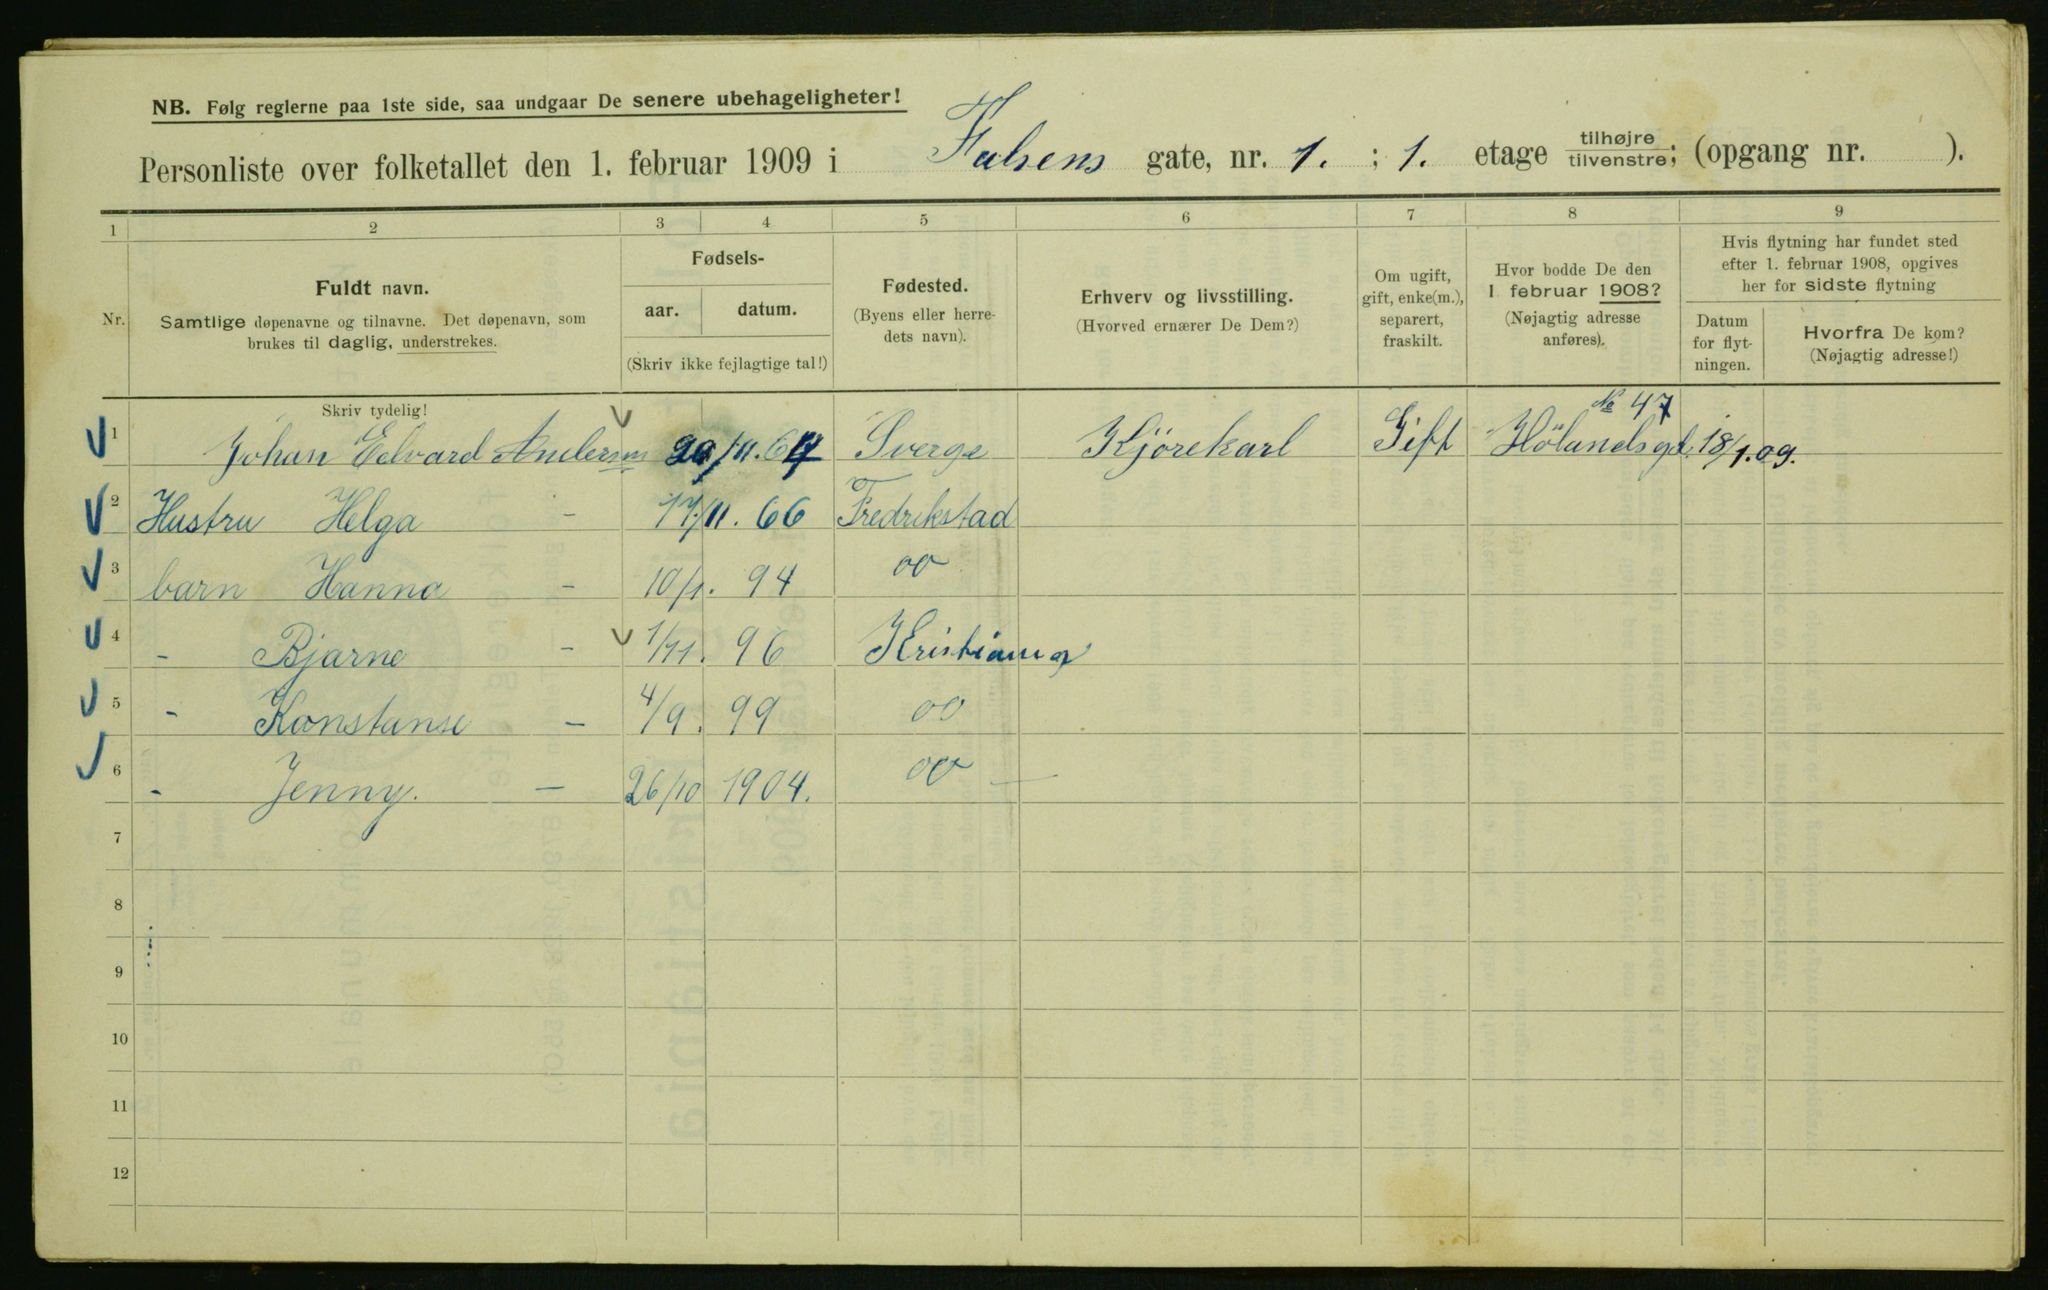 NB. Følg reglerne paa 1ste side, saa undgaar De senere ubehageligheter!
Personliste over folketallet den 1. februar 1909 i Falsens gate, nr. 1. ; 1. etage tilhøjre tilvenstre; (opgang nr. ).
1 2 3 4 5 6 7 8 9
Nr.
Fuldt navn.
Samtlige døpenavne og tilnavne. Det døpenavn, som
brukes til daglig, understrekes.
Fødsels-
aar. datum.
(Skriv ikke fejlagtige tal!)
Fødested.
(Byens eller herre-
dets navn).
Erhverv og livsstilling.
(Hvorved ernærer De Dem?)
Om ugift,
gift, enke(m.),
separert,
fraskilt.
Hvor bodde De den
1 februar 1908?
(Nøjagtig adresse
anføres).
Hvis flytning har fundet sted
efter 1. februar 1908, opgives
her for sidste flytning
Datum
for flyt-
ningen.
Hvorfra De kom?
(Nøjagtig adresse!)
Skriv tydelig!
№ 47
1 Johan Edvard Andersen /11. 64 Sverge Kjörekarl Gift Hölandsgd. 18/1.09.
2 Hustru Helga - 17/11. 66 Fredrikstad
3 barn Hanna - 10/1. 94 oo
4 - Bjarne - 1/11. 96 Kristiania
5 - Konstanse - 4/9. 99 oo
6 - Jenny. - 26/10 1904. oo -
7
8
9
10
11
12